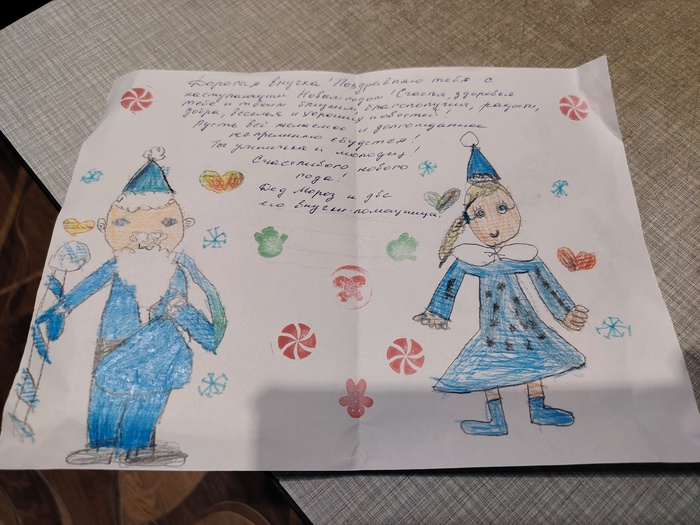 Дорогая внучка! Поздравляю тебя с
наступающим Новым годом! Счастья, здоровья
тебе и твоим близким, благополучия, радости,
добра, веселья и хороших новостей!
Пусть всё желаемое и долгожданное
непременно сбудется!
Ты умничка и молодец!
Счастливого нового
года!
Дед Мороз и две
его внучки-помощницы.